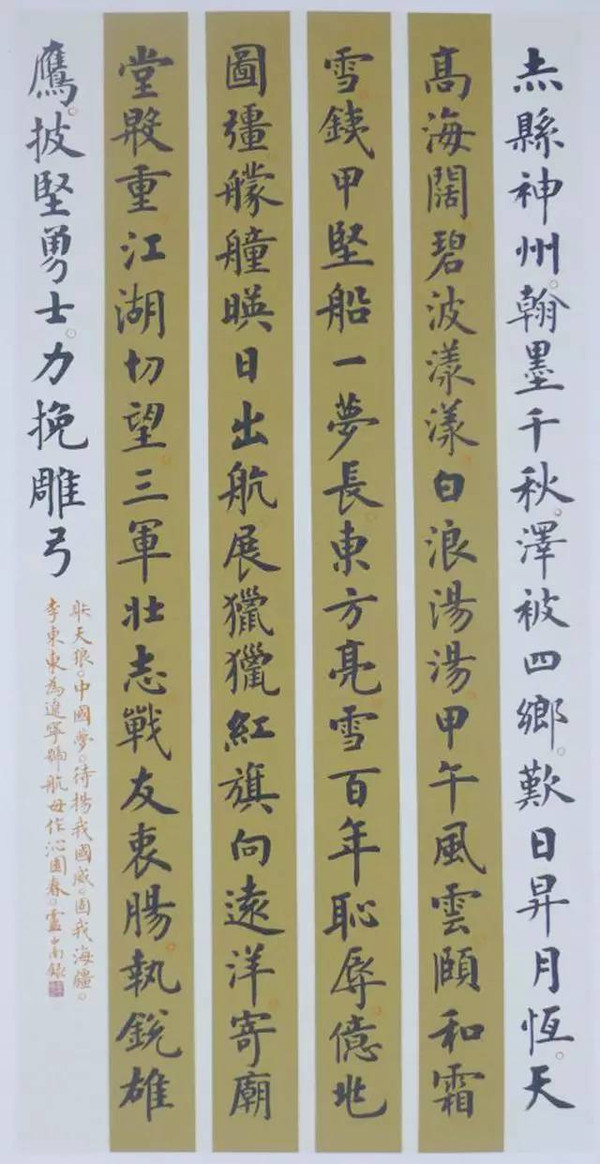 赤縣神州翰墨千秋澤被四鄉歎日昇月恆天
高海闊碧波漾漾白浪湯湯甲午風雲頤和霜
雪銕甲堅船一夢長東方亮雪百年恥辱億兆
圖彊艨艟暎日出航展獵獵紅旗向遠洋寄廟
堂殿重江湖切望三軍壯志戰友衷腸執銳雄
鷹披堅勇士力挽雕弓
射天狼中國夢待揚我國威固我海疆
李東東為遼寧號航母作沁園春盧中南錄